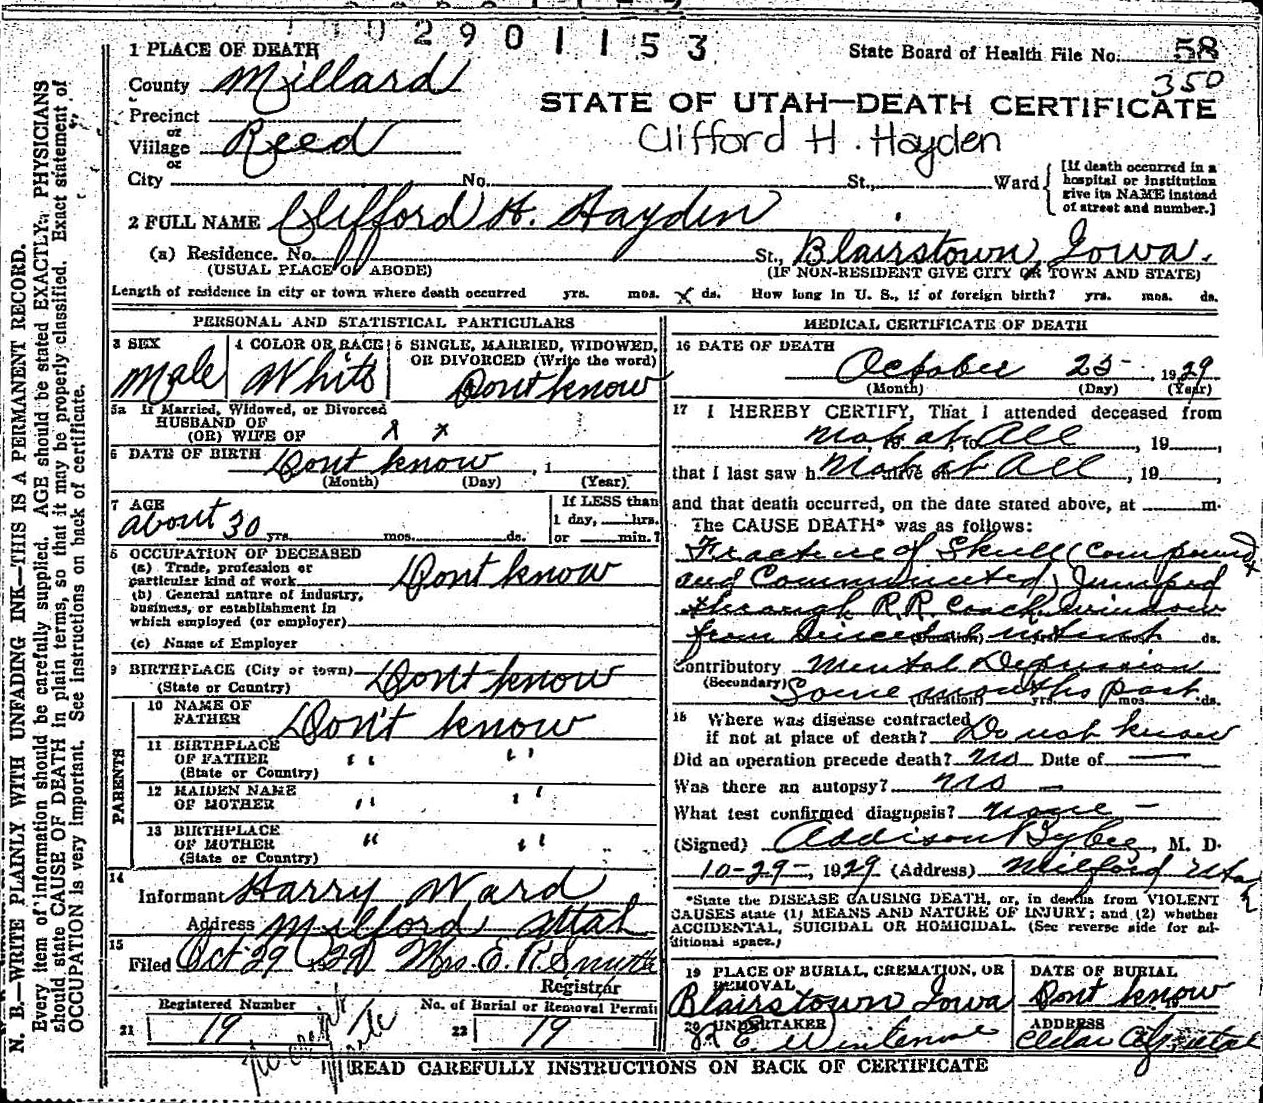 0 2 9 0 1 1 5 3
1 PLACE OF DEATH
State Board of Health File No. 58
350
County Millard
STATE OF UTAH—DEATH CERTIFICATE
Precinct
or
Village Reed
Clifford H. Hayden
or
City No. St., Ward
[If death occurred in a
hospital or institution
give its NAME instead
of street and number.]
2 FULL NAME Clifford H. Hayden
(a) Residence. No. St., Blairstown, Iowa.
(USUAL PLACE OF ABODE) (IF NON-RESIDENT GIVE CITY OR TOWN AND STATE)
Length of residence in city or town where death occurred yrs. mos. x ds. How long in U. S., if of foreign birth? yrs. mos. ds.
PERSONAL AND STATISTICAL PARTICULARS
3 SEX Male
4 COLOR OR RACE White
5 SINGLE, MARRIED, WIDOWED,
OR DIVORCED (Write the word)
Dont know
5a If Married, Widowed, or Divorced
HUSBAND OF
(OR) WIFE OF x x
6 DATE OF BIRTH Dont know , 1
(Month) (Day) (Year)
7 AGE
about 30 yrs. mos. ds.
If LESS than
1 day, hrs.
or min.?
8 OCCUPATION OF DECEASED
(a) Trade, profession or
particular kind of work Dont know
(b) General nature of industry,
business, or establishment in
which employed (or employer)
(c) Name of Employer
9 BIRTHPLACE (City or town) Dont know
(State or Country)
PARENTS
10 NAME OF
FATHER Don't know
11 BIRTHPLACE
OF FATHER " " " "
(State or Country)
12 MAIDEN NAME
OF MOTHER " "
13 BIRTHPLACE
OF MOTHER " "
(State or Country)
14
Informant Harry Ward
Address Milford Utah
15
Filed Oct 29 1929 Mrs. E. R. Smith
Registrar
Registered Number No. of Burial or Removal Permit
21 19 22 19
MEDICAL CERTIFICATE OF DEATH
16 DATE OF DEATH
October 25 , 1929
(Month) (Day) (Year)
17 I HEREBY CERTIFY, That I attended deceased from
Not at All , 19 ,
that I last saw h Not at All , 19 ,
and that death occurred, on the date stated above, at m.
The CAUSE DEATH* was as follows:
Fracture of Skull (Compound
and Comminuted) Jumped
through R.R. Coach window
from
ds.
Contributory Mental Depression
(Secondary) Some months past
(Duration) yrs. mos. ds.
18 Where was disease contracted
if not at place of death? Do not know
Did an operation precede death? No Date of —
Was there an autopsy? No —
What test confirmed diagnosis? None —
(Signed) Addison Bybee, M. D.
10-29-, 1929 (Address) Milford Utah
*State the DISEASE CAUSING DEATH, or, in deaths from VIOLENT
CAUSES state (1) MEANS AND NATURE OF INJURY; and (2) whether
ACCIDENTAL, SUICIDAL OR HOMICIDAL. (See reverse side for ad-
ditional space.)
19 PLACE OF BURIAL, CREMATION, OR
REMOVAL
Blairstown Iowa
DATE OF BURIAL
Dont know
20 UNDERTAKER
ADDRESS
Cedar City, Utah
READ CAREFULLY INSTRUCTIONS ON BACK OF CERTIFICATE
N. B.—WRITE PLAINLY WITH UNFADING INK—THIS IS A PERMANENT RECORD.
Every item of information should be carefully supplied. AGE should be stated EXACTLY. PHYSICIANS
should state CAUSE OF DEATH in plain terms, so that it may be properly classified. Exact statement of
OCCUPATION is very important. See instructions on back of certificate.